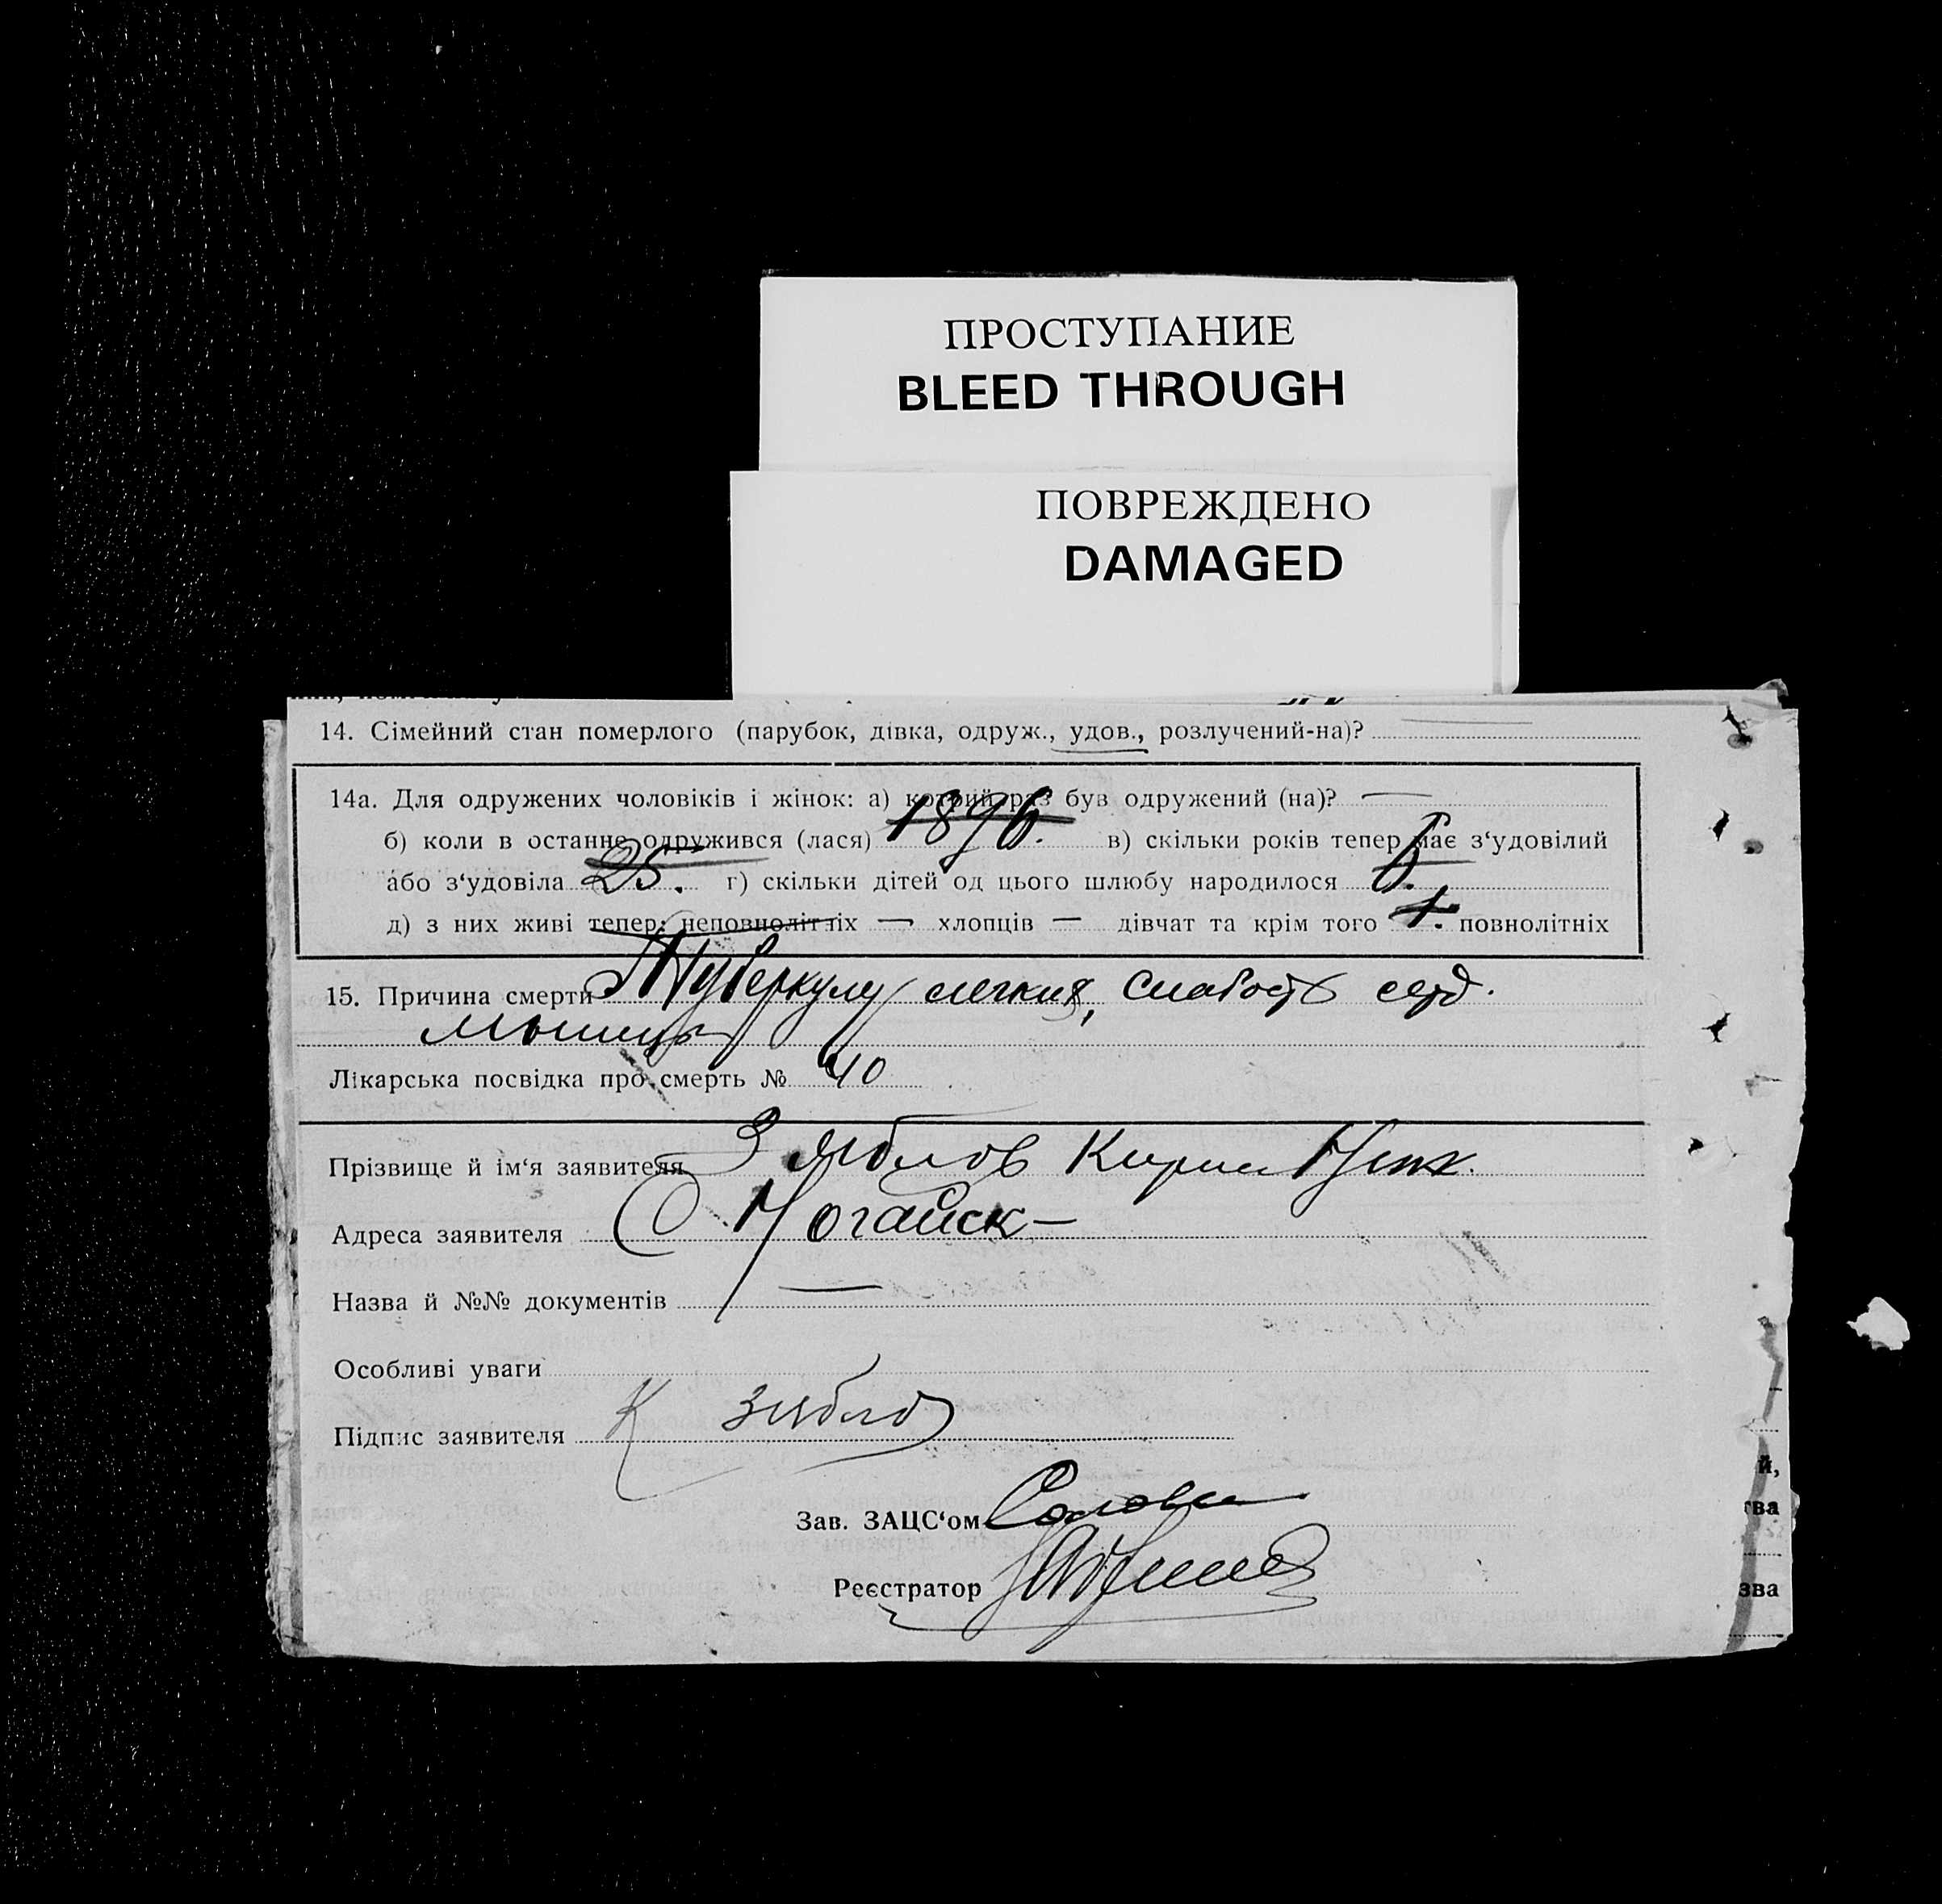 ПРОСТУПАНИЕ
BLEED THROUGH
ПОВРЕЖДЕНО
DAMAGED
14. Сімейний стан померлого (парубок, дівка, одруж., удов., розлучений-на)?
14а. Для одружених чоловіків і жінок: а) котрий раз був одружений (на)? —
б) коли в останнє одружився (лася) 1896. в) скільки років тепер має з‘удовілий
або з‘удовіла 25. г) скільки дітей од цього шлюбу народилося 6.
д) з них живі тепер: неповнолітніх — хлопців — дівчат та крім того 1. повнолітніх
15. Причина смерти Туберкулу легких, слабость серд.
мышцы
Лікарська посвідка про смерть № 40
Прізвище й ім‘я заявителя Зяблов Кирил
Адреса заявителя Ногайск —
Назва й №№ документів —
Особливі уваги
Підпис заявителя К Зяблов
Зав. ЗАЦС‘ом
Реєстратор
й,
тва
зва